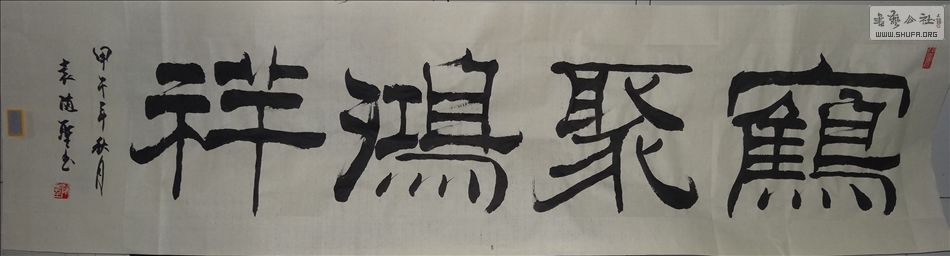 鶴聚鴻祥
甲午年秋月
袁随聖书
書藝公社
WWW.SHUFA.ORG